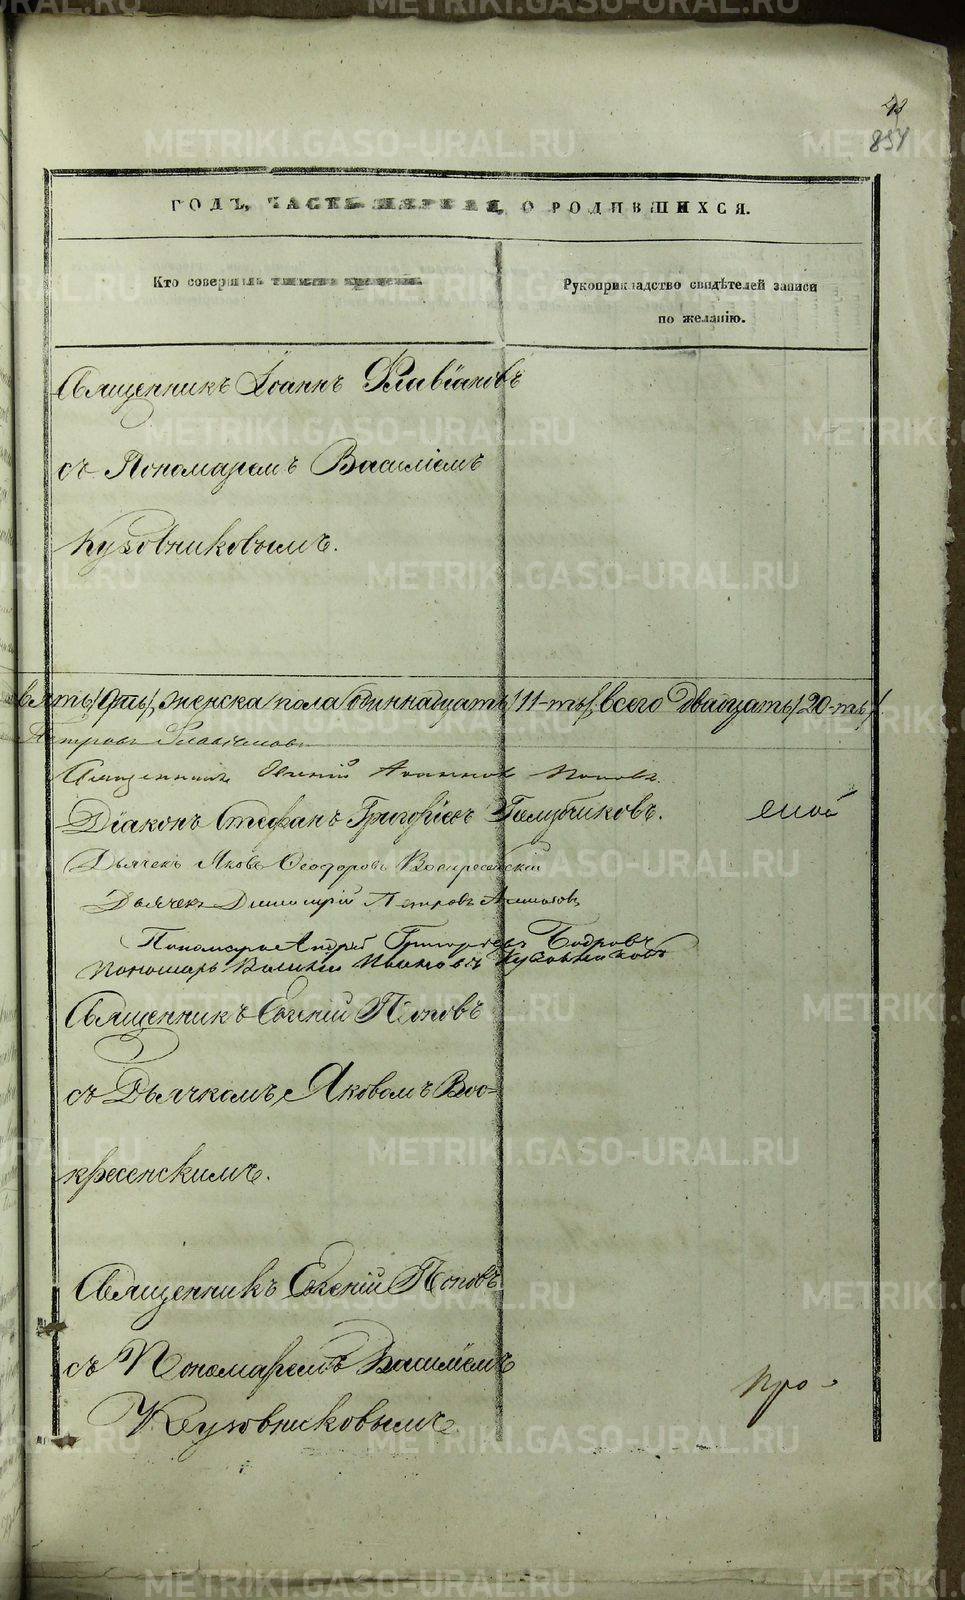 43
851
ГОДЪ, ЧАСТЬ ПЕРВАЯ, О РОДИВШИХСЯ.
Кто совершалъ таинство крещенія.
Рукоприкладство свидѣтелей записи
по желанію.
Священникъ Іоаннъ Флавіановъ
съ Пономаремъ Василіемъ
Кузовниковымъ.
вять/9ть/, женска/пола/одиннадцать/11-ть/, всего двадцать/20-ть/
Петровъ Флавіановъ
Священникъ Евгеній Іоанновъ Поповъ.
Діаконъ Стефанъ Григоріевъ Голубчиковъ.
Дьячекъ Яковъ Ѳеодоровъ Воскресенскій
Дьячекъ Димитрій Петровъ
Пономарь Андрей Григорьевъ Бодровъ
Пономарь Василій Ивановъ Кузовниковъ
Священникъ Евгеній Поповъ
съ Дьячкомъ Яковомъ Вос-
кресенскимъ.
Священникъ Евгеній Поповъ
съ Пономаремъ Василіемъ
Кузовниковымъ.
Про-
METRIKI.GASO-URAL.RU